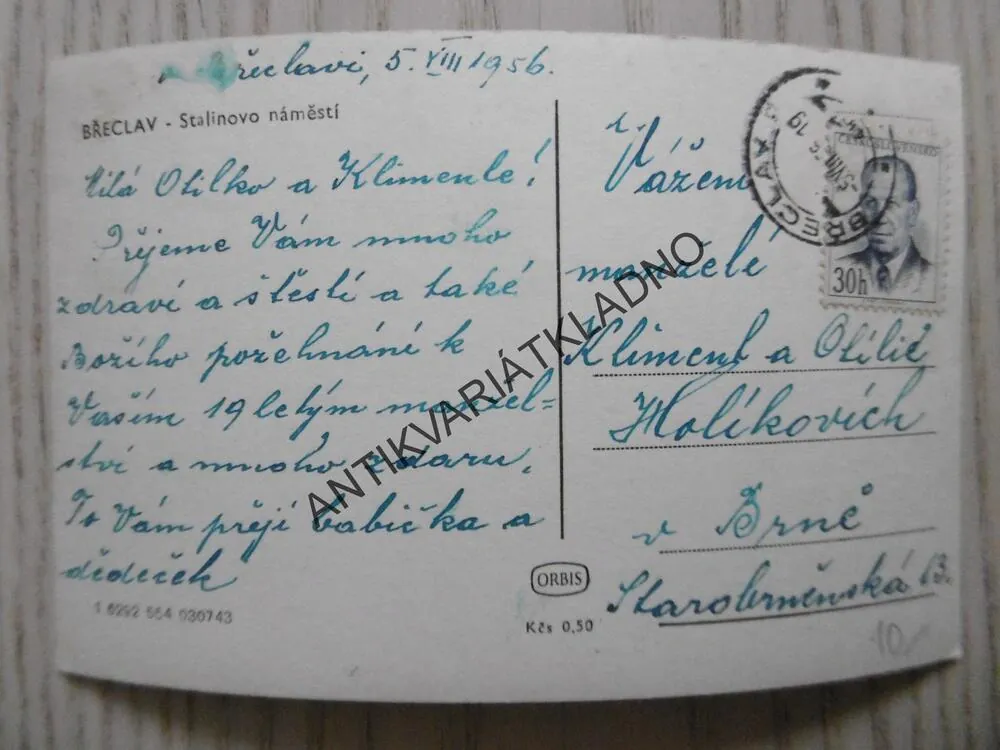 v Břeclavi, 5. VIII 1956.
BŘECLAV - Stalinovo náměstí
Milá Otilko a Klimente!
Přejeme Vám mnoho
zdraví a štěstí a také
Božího požehnání k
Vašim 19 letým manžel=
ství a mnoho zdaru.
To Vám přejí babička a
dědeček
1 6292 554 030743
Vážení
manželé
Kliment a Otilie
Holíkovich
v Brně
Starobrněnská 13.
ORBIS
Kčs 0,50
BŘECLAV
ČESKOSLOVENSKO
30h
10,-
ANTIKVARIÁTKLADNO